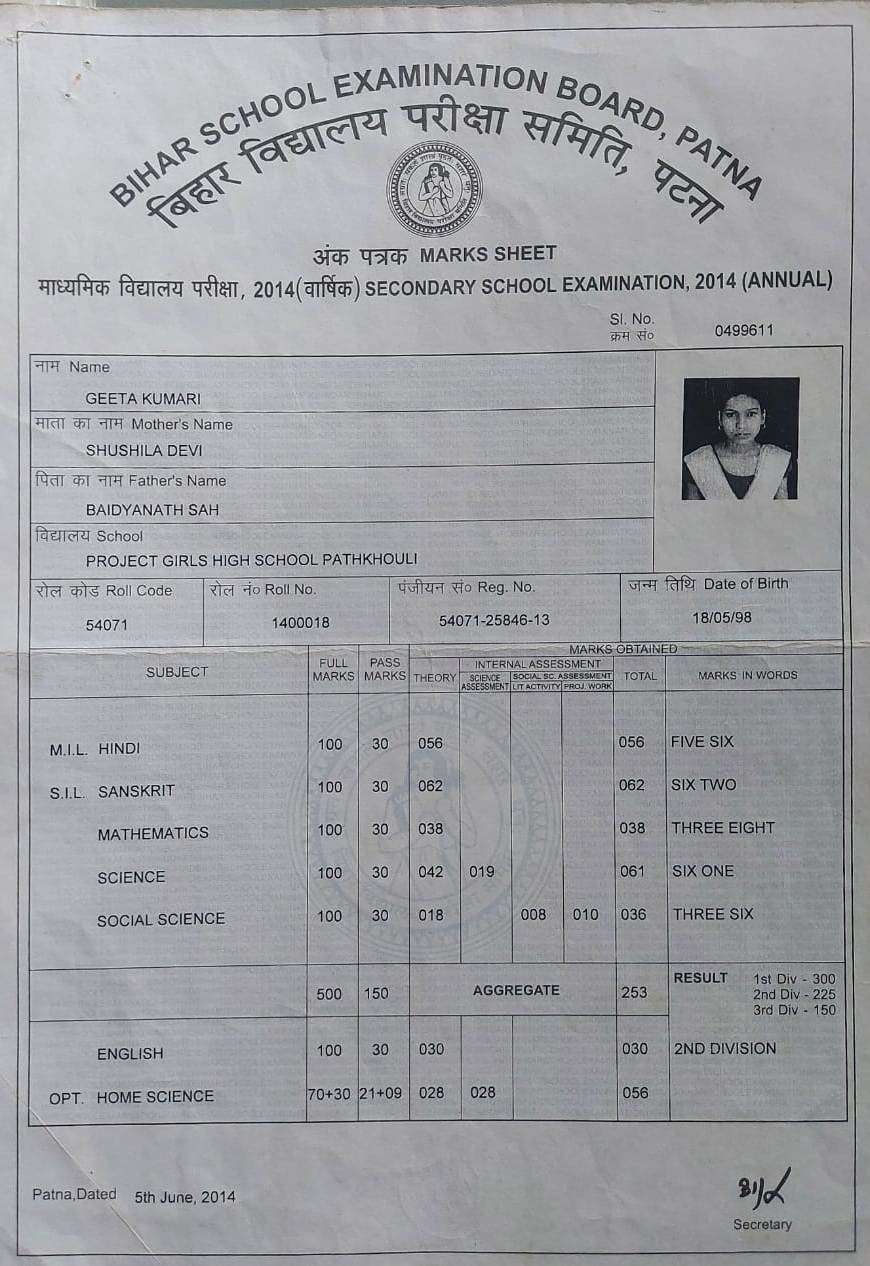 BIHAR SCHOOL EXAMINATION BOARD, PATNA
बिहार विद्यालय परीक्षा समिति, पटना
अंक पत्रक MARKS SHEET
माध्यमिक विद्यालय परीक्षा, 2014(वार्षिक) SECONDARY SCHOOL EXAMINATION, 2014 (ANNUAL)
Sl. No.
क्रम सं० 0499611
नाम Name
GEETA KUMARI
माता का नाम Mother's Name
SHUSHILA DEVI
पिता का नाम Father's Name
BAIDYANATH SAH
विद्यालय School
PROJECT GIRLS HIGH SCHOOL PATHKHOULI
रोल कोड Roll Code रोल नं० Roll No. पंजीयन सं० Reg. No. जन्म तिथि Date of Birth
54071 1400018 54071-25846-13 18/05/98
MARKS OBTAINED
SUBJECT FULL MARKS PASS MARKS THEORY INTERNAL ASSESSMENT TOTAL MARKS IN WORDS
SCIENCE ASSESSMENT SOCIAL SC. ASSESSMENT
LIT ACTIVITY PROJ. WORK
M.I.L. HINDI 100 30 056 056 FIVE SIX
S.I.L. SANSKRIT 100 30 062 062 SIX TWO
MATHEMATICS 100 30 038 038 THREE EIGHT
SCIENCE 100 30 042 019 061 SIX ONE
SOCIAL SCIENCE 100 30 018 008 010 036 THREE SIX
500 150 AGGREGATE 253 RESULT 1st Div - 300
2nd Div - 225
3rd Div - 150
ENGLISH 100 30 030 030 2ND DIVISION
OPT. HOME SCIENCE 70+30 21+09 028 028 056
Patna,Dated 5th June, 2014
Secretary